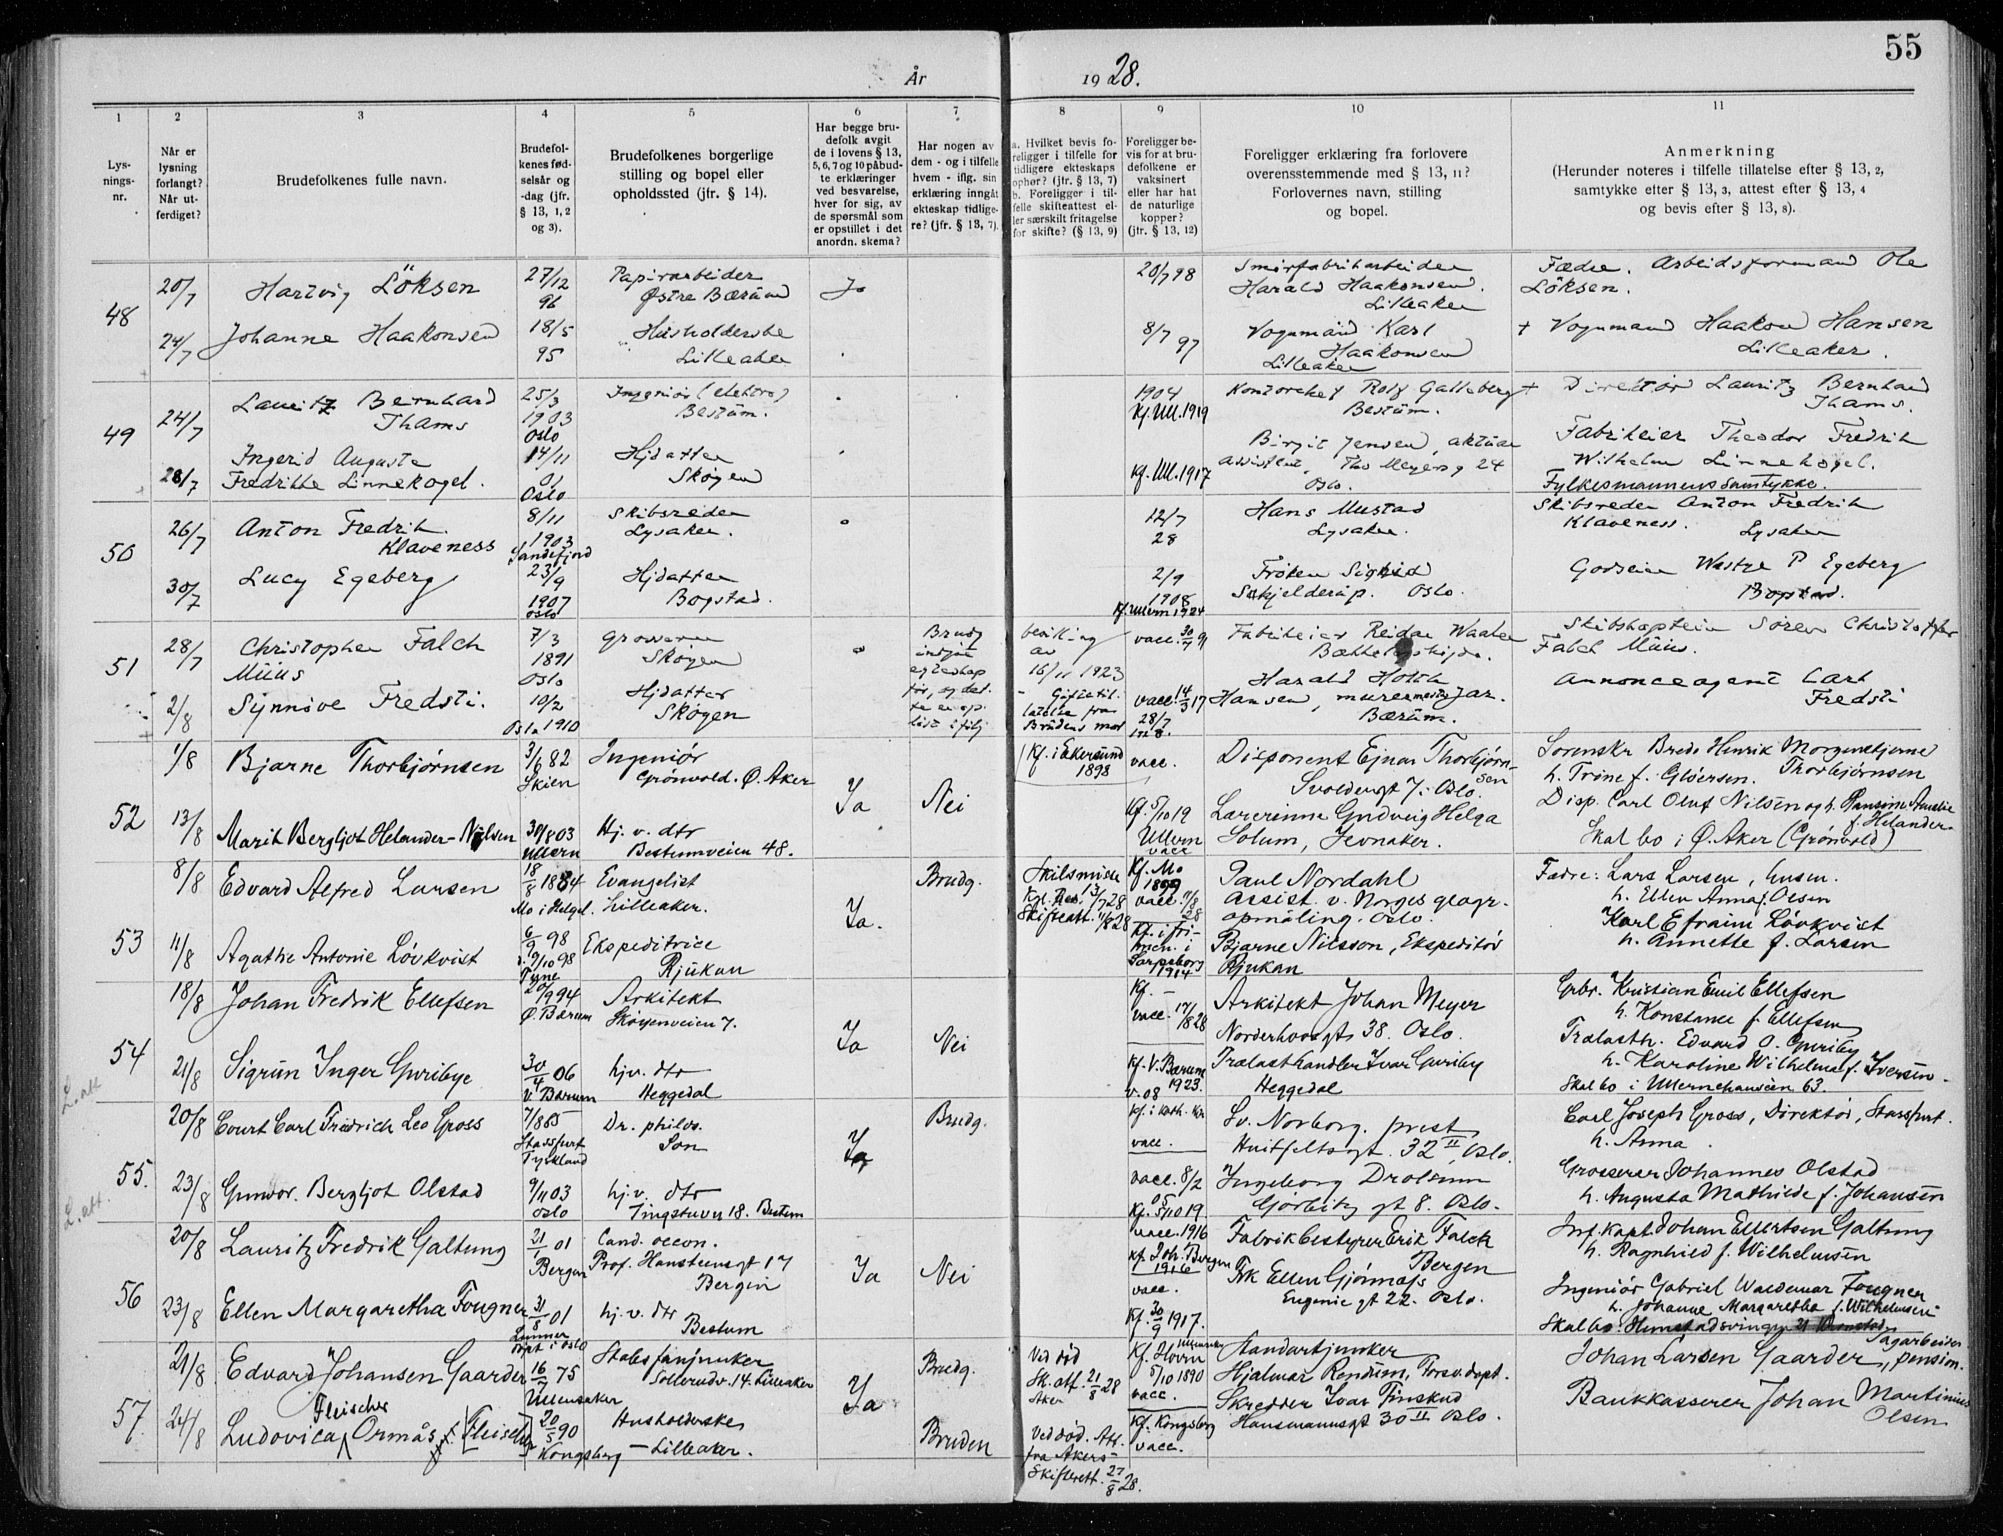 55
År 1928.
1 2 3 4 5 6 7 8 9 10 11
Lys-
nings-
nr.
Når er
lysning
forlangt?
Når ut-
ferdiget?
Brudefolkenes fulle navn.
Brudefol-
kenes fød-
selsår og
-dag (jfr.
§ 13, 1, 2
og 3).
Brudefolkenes borgerlige
stilling og bopel eller
opholdssted (jfr. § 14).
Har begge bru-
defolk avgit
de i lovens § 13,
5, 6, 7 og 10 påbud-
te erklæringer
ved besvarelse,
hver for sig, av
de spørsmål som
er opstillet i det
anordn. skema?
Har nogen av
dem - og i tilfelle
hvem - iflg. sin
erklæring inngåt
ekteskap tidlige-
re? (jfr. § 13, 7).
a. Hvilket bevis fo-
religger i tilfelle for
tidligere ekteskaps
ophør? (jfr. § 13, 7)
b. Foreligger i til-
felle skifteattest el-
ler særskilt fritagelse
for skifte? (§ 13, 9)
Foreligger be-
vis for at bru-
defolkene er
vaksinert
eller har hat
de naturlige
kopper?
(jfr. § 13, 12)
Foreligger erklæring fra forlovere
overensstemmende med § 13, 11?
Forlovernes navn, stilling
og bopel.
Anmerkning
(Herunder noteres i tilfelle tillatelse efter § 13, 2,
samtykke efter § 13, 3, attest efter § 13, 4
og bevis efter § 13, 8).
48
20/7 Hartvig Löksen 27/12 96 Papirarbeider Østre Bærum Ja 20/7 98 Smörfabrikarbeider Harald Haakonsen. Lilleaker Fædre. Arbeidsformand Ole Löksen.
24/7 Johanne Haakonsen 18/5 95 Husholderske Lilleaker 8/7 97 Vognmand Karl Haakonsen Lilleaker + Vognmand Haakon Hansen Lilleaker.
49
24/7 Lauritz Bernhard Thams 25/3 1903 Oslo Ingeniör (elektro) Bestum. 1904 Kf. Ull. 1919 Kontorchef Rolf Galleberg Bestum. + Direktør Lauritz Bernhard Thams.
28/7 Ingerid Auguste Fredrikke Linnekogel. 14/11 01 Oslo Hjdatter Skøyen Kf. Ull. 1917 Birgit Jensen, aktuar assistent, Tho Meyers g 24 Oslo. Fabrikeier Theodor Fredrik Wilhelm Linnekogel. Fylkesmannens samtykke.
50
26/7 Anton Fredrik Klaveness 8/11 1903 Sandefjord Skibsreder Lysaker. 12/7 28 Hans Mustad Lysaker. Skibsreder Anton Fredrik Klaveness. Lysaker
30/7 Lucy Egeberg 23/9 1907 Oslo Hjdatter Bogstad. 2/9 1908 Kf. Ullern 1924 Frøken Sigrid Skjelderup. Oslo. Godseier Westye P Egeberg Bogstad.
51
28/7 Christopher Falch Müus 7/3 1891 Oslo Grosserer Skøyen Brudg bevilling av 16/11 1923 vacc. 30/7 91 Fabrikeier Reidar Waaler Skibskaptein Sören Christoffer Falch Müus.
2/8 Synnöve Fredsti. 10/2 Oslo 1910 Hjdatter Skøyen - Giftetil- latelse fra Brudens mor vacc. 14/3 17 28/7 Harald Holth Hansen, murermester Jar. Bærum. Annonceagent Carl Fredsti
52
1/8 Bjarne Thorbjørnsen 3/6 82 Skien Ingeniör Grönvold. Ø. Aker Ja Nei Kf. i Ekersund 1898 vacc. Disponent Ejnar Thorbjørn- sen Svoldersgt 7. Oslo. Sorenskr Brede Henrik Morgenstjerne h. Trine f. Glöersen. Thorbjørnsen
13/8 Marit Bergljot Helander-Nilsen 30/8 03 Ullern Hj. v. dtr Bestumveien 48. Kf. 5/10 19 Ullern vacc Lærerinne Gudveig Helga Solum, Jevnaker. Disp. Carl Oluf Nilsen og h. Amalie f. Helander. Skal bo i Ø. Aker (Grönvold)
53
8/8 Edvard Alfred Larsen 18/8 1884 Mo i Helgel. Evangelist Lilleaker. Ja. Brudg. Skilsmisse Kgl. Res. 13/7 28 Skifteatt. 11/8 28 Kf. Mo 1899 vacc. 11/8 28 Paul Nordahl Assist. v. Norges geogr. opmåling. Oslo. Fædre: Lars Larsen, h. Ellen Anna f. Olsen
11/8 Agathe Antonie Lövkvist 6/9 98 Ekspeditrice Rjukan Kf. i fri- men. i Sarpsborg 1914 Bjarne Nilsson, Ekspeditör Rjukan Karl Efraim Lövkvist h. Annette f. Larsen
54
18/8 Johan Fredrik Ellefsen 20/9 94 Ø. Bærum Arkitekt Skøyenveien 7. Ja Nei Kf. - vacc. 17/8 28 Arkitekt Johan Meyer Norderhovsgt 38. Oslo. Gbr. Kristian Emil Ellefsen h. Konstance f. Ellefsen
21/8 Sigrun Inger Guribye 30/4 06 V. Bærum hjv. dtr Heggedal Kf. V. Bærum 1923. v. 08 Trælasthandler Ivar Guriby Heggedal Trælasth. Edvard O. Guriby h. Karoline Wilhelma f. Iversen. Skal bo i Ullernchauséen 63.
L. att
55.
20/8 Court Carl Fredrich Leo Gross 7/8 85 Stassfurt Tyskland Dr. philos. Son Ja Brudg. Kf. i kath. Kir vacc. Sv. Norborg. prest Huitfeltsgt. 32 II, Oslo. Carl Joseph Gross, Direktör, Stassfurt. h. Anna.
23/8 Gunvor Bergljot Olstad 9/11 03 Oslo hj.v. dtr Tingstuvn 18. Bestum vacc. 8/2 05 Kf. 5/10 19. Ingeborg Drolsum Gjörbitz gt 8. Oslo. Grosserer Johannes Olstad h. Augusta Mathilde f. Johansen
L. att.
56
20/8 Lauritz Fredrik Galtung 21/1 01 Bergen Cand. oecon. Prof. Hansteensgt 17 Bergen Ja Nei vacc. 1916 Kf. Joh. Bergen 1916 Fabrikbestyrer Erik Falck Bergen Inf. Kapt Johan Ellertsen Galtung h. Ragnhild f. Wilhelmsen
23/8 Ellen Margaretha Fougner 31/8 01 Lunner hj. v. dtr Bestum vacc. Kf. 30/9 1917. Frk Ellen Gjönnæss Eugenie gt 22. Oslo. Ingeniör Gabriel Waldemar Fougner h. Johanne Margaretha f. Wilhelmsen Skal bo:
57.
21/8 Edvard Johansen Gaarder 16/7 75 Ullensaker Stabsfanejunker Sollerudv. 14. Lilleaker Ja Brudg. Ved död Sk. att. 21/8 28 Aker Kf. Hovin 5/10 1890 vacc. Standartjunker Hjalmar Rendum, Forsv. dept. Johan Larsen Gaarder, Sagarbeider pension.
24/8 Ludovica Fleischer Ormås f. Fleischer 20/5 90 Kongsberg Husholderske - Lilleaker. Bruden Ved död. Att. fra Akers Skifterett. 27/8 28. Kf. Kongsberg vacc. Skredder Ivar Finskud Hansmannsgt 30 II Oslo. Bankkasserer Johan Martinius Olsen